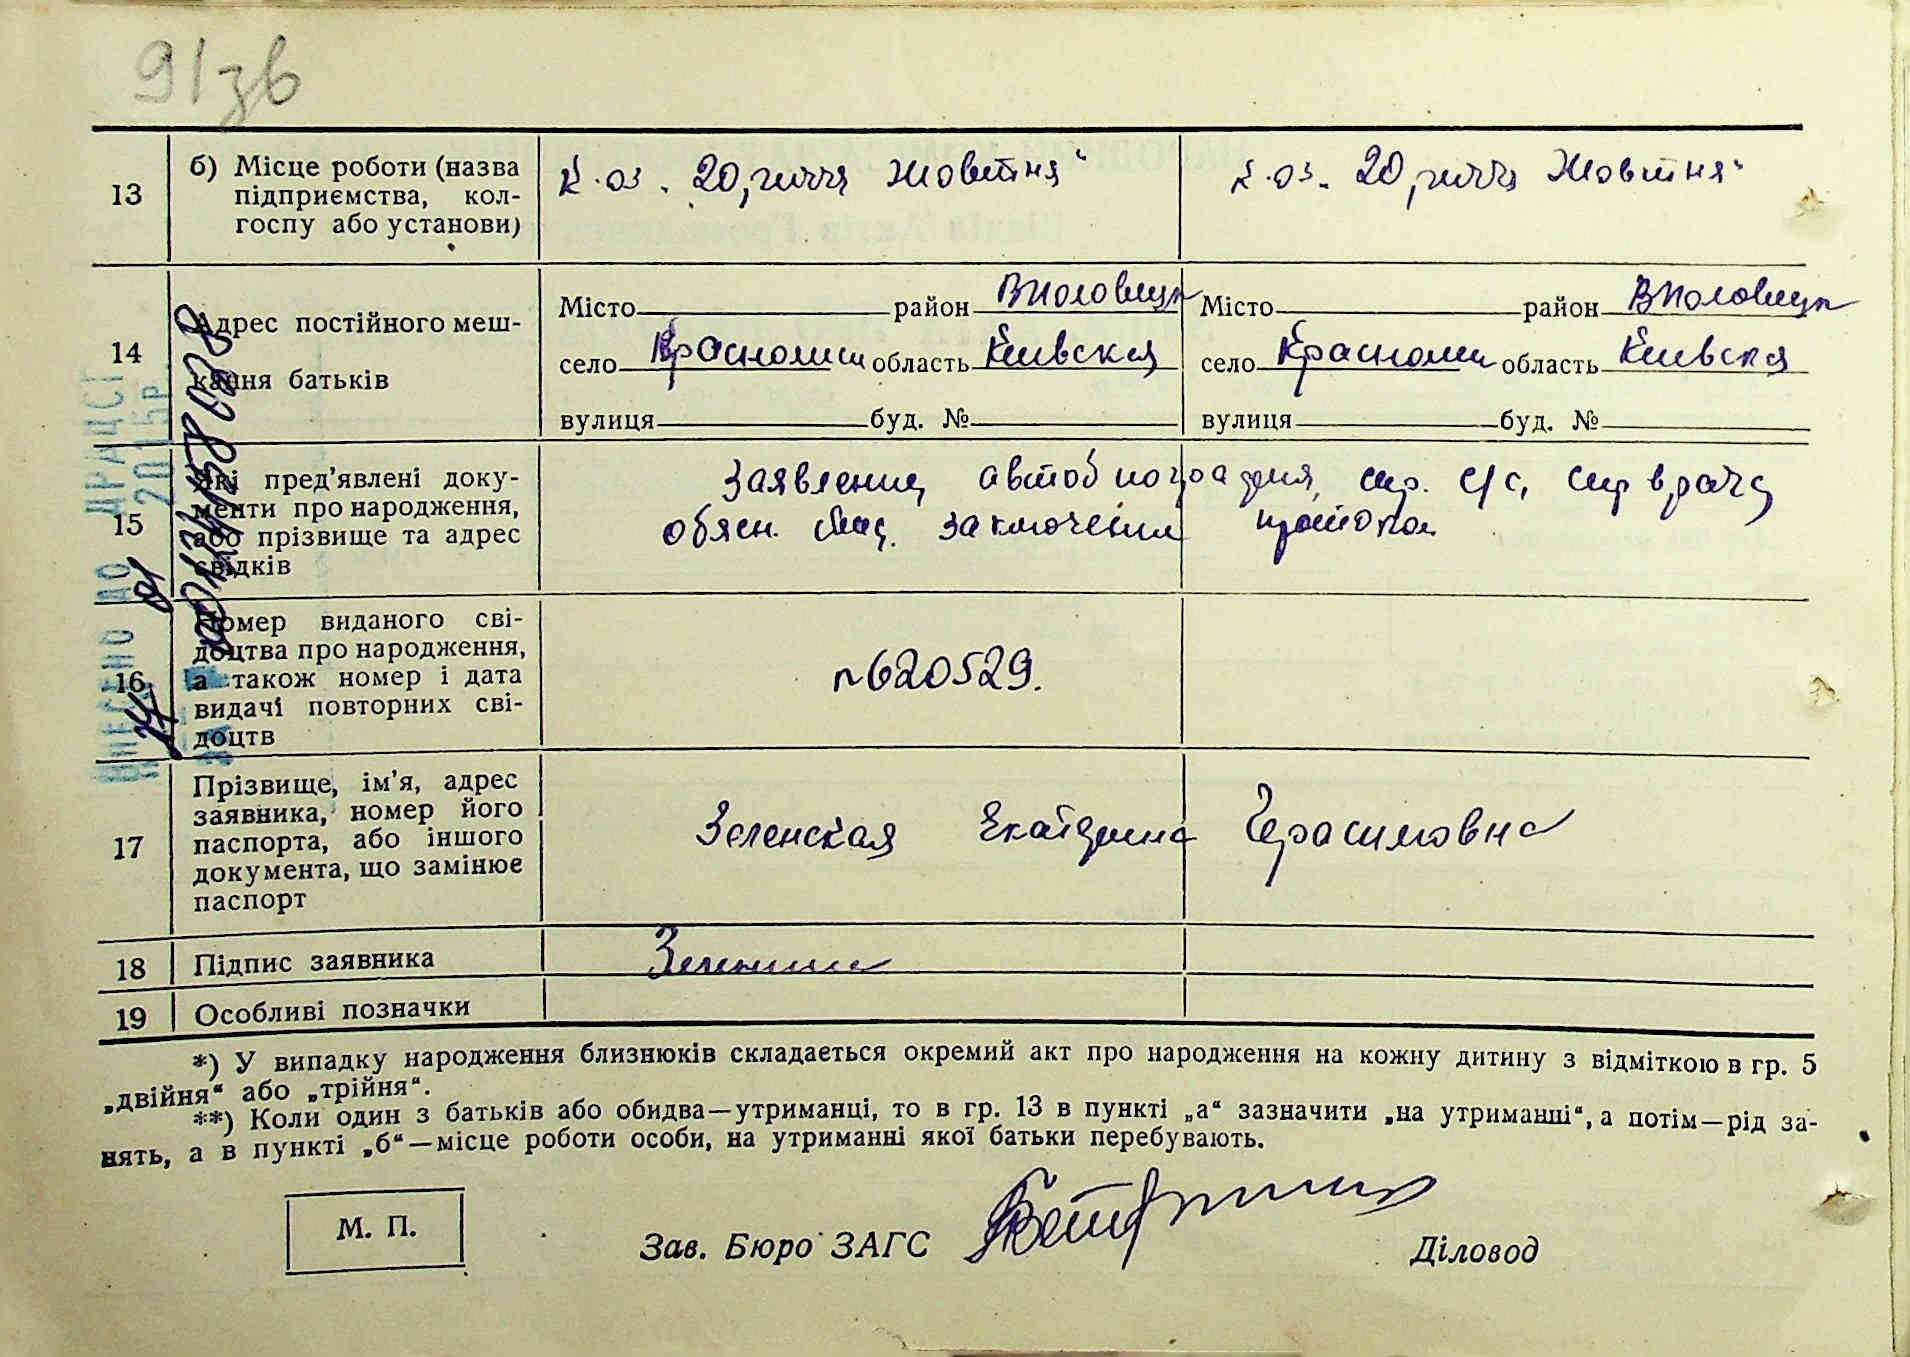 91зв
13 б) Місце роботи (назва підприємства, кол-
госпу або установи)
К-оз. 20,річчя Жовтня"
К-оз. 20,річчя Жовтня"
14 Адрес постійного меш-
кання батьків
Місто район Вполовецк
село область Київская
вулиця буд. №
Місто район Вполовецк
село область Київская
вулиця буд. №
15 Які пред'явлені доку-
менти про народження,
або прізвище та адрес
свідків
Заявление, автобиография, спр. с/с, спр врача
обясн. заключения
16 Номер виданого сві-
доцтва про народження,
а також номер і дата
видачі повторних сві-
доцтв
№620529.
17 Прізвище, ім'я, адрес
заявника, номер його
паспорта, або іншого
документа, що замінює
паспорт
Зеленская Екатерина Герасимовна
18 Підпис заявника
19 Особливі позначки
*) У випадку народження близнюків складається окремий акт про народження на кожну дитину з відміткою в гр. 5
„двійня“ або „трійня“.
**) Коли один з батьків або обидва—утриманці, то в гр. 13 в пункті „а“ зазначити „на утриманні“, а потім—рід за-
нять, а в пункті „б“—місце роботи особи, на утриманні якої батьки перебувають.
М. П.
Зав. Бюро ЗАГС
Діловод
ВНЕСЕНО ДО ДРАЦСГ
2015р.